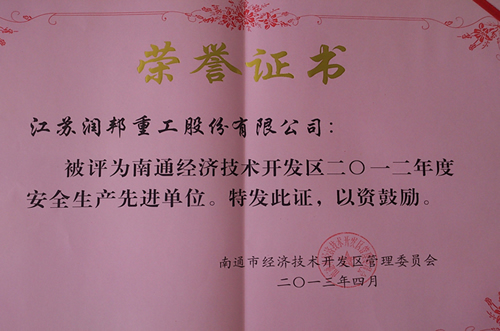 荣誉证书
江苏润邦重工股份有限公司：
被评为南通经济技术开发区二〇一二年度
安全生产先进单位。特发此证，以资鼓励。
南通市经济技术开发区管理委员会
二〇一三年四月